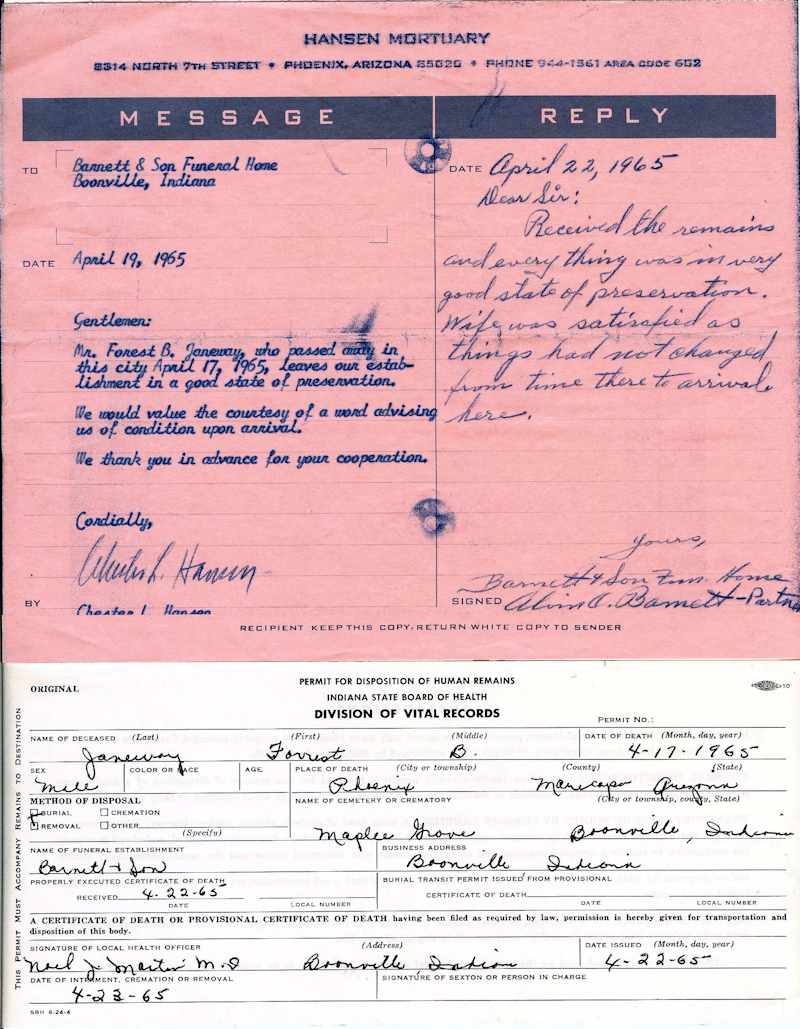 HANSEN MORTUARY
8314 NORTH 7TH STREET • PHOENIX, ARIZONA 85020 • PHONE 944-1561 AREA CODE 602
MESSAGE
REPLY
TO
Barnett & Son Funeral Home
Boonville, Indiana
DATE April 19, 1965
Gentlemen:
Mr. Forest B. Janeway, who passed away in
this city April 17, 1965, leaves our estab-
lishment in a good state of preservation.
We would value the courtesy of a word advising
us of condition upon arrival.
We thank you in advance for your cooperation.
Cordially,
Chester L. Hansen
BY
Chester L. Hansen
DATE April 22, 1965
Dear Sir:
Received the remains
and every thing was in very
good state of preservation.
Wife was satisafied as
things had not changed
from time there to arrival
here.
Yours,
Barnett & Son Fun. Home
SIGNED Alvin C. Barnett-Partner
RECIPIENT KEEP THIS COPY, RETURN WHITE COPY TO SENDER
ORIGINAL
PERMIT FOR DISPOSITION OF HUMAN REMAINS
INDIANA STATE BOARD OF HEALTH
DIVISION OF VITAL RECORDS
10
PERMIT NO.:
THIS PERMIT MUST ACCOMPANY REMAINS TO DESTINATION
NAME OF DECEASED (Last) (First) (Middle) DATE OF DEATH (Month, day, year)
Janeway Forrest B. 4-17-1965
SEX COLOR OR RACE AGE PLACE OF DEATH (City or township) (County) (State)
Male Phoenix Maricopa Arizona
METHOD OF DISPOSAL NAME OF CEMETERY OR CREMATORY (City or township, county, State)
BURIAL CREMATION
REMOVAL OTHER
(Specify)
Maplee Grove Boonville, Indiana
NAME OF FUNERAL ESTABLISHMENT BUSINESS ADDRESS
Barnett & Son Boonville Indiana
PROPERLY EXECUTED CERTIFICATE OF DEATH BURIAL TRANSIT PERMIT ISSUED FROM PROVISIONAL
RECEIVED 4-22-65 CERTIFICATE OF DEATH
DATE LOCAL NUMBER DATE LOCAL NUMBER
A CERTIFICATE OF DEATH OR PROVISIONAL CERTIFICATE OF DEATH having been filed as required by law, permission is hereby given for transportation and
disposition of this body.
SIGNATURE OF LOCAL HEALTH OFFICER (Address) DATE ISSUED (Month, day, year)
Noel J. Martin M.D Boonville Indiana 4-22-65
DATE OF INTERMENT, CREMATION OR REMOVAL SIGNATURE OF SEXTON OR PERSON IN CHARGE
4-23-65
SBH 6-24-4